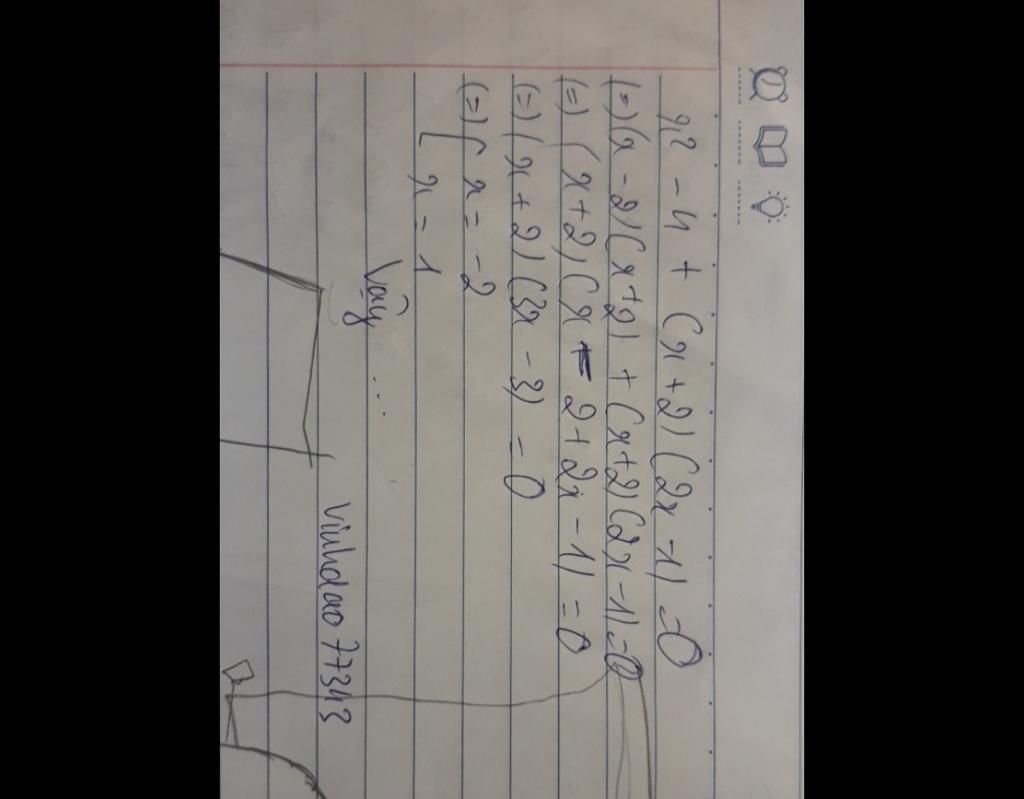 x² - 4 + (x + 2)(2x - 1) = 0
(=) (x - 2)(x + 2) + (x + 2)(2x - 1) = 0
(=) (x + 2)(x - 2 + 2x - 1) = 0
(=) (x + 2)(3x - 3) = 0
(=) [ x = -2
[ x = 1
Vậy ...
Vinhdao77343